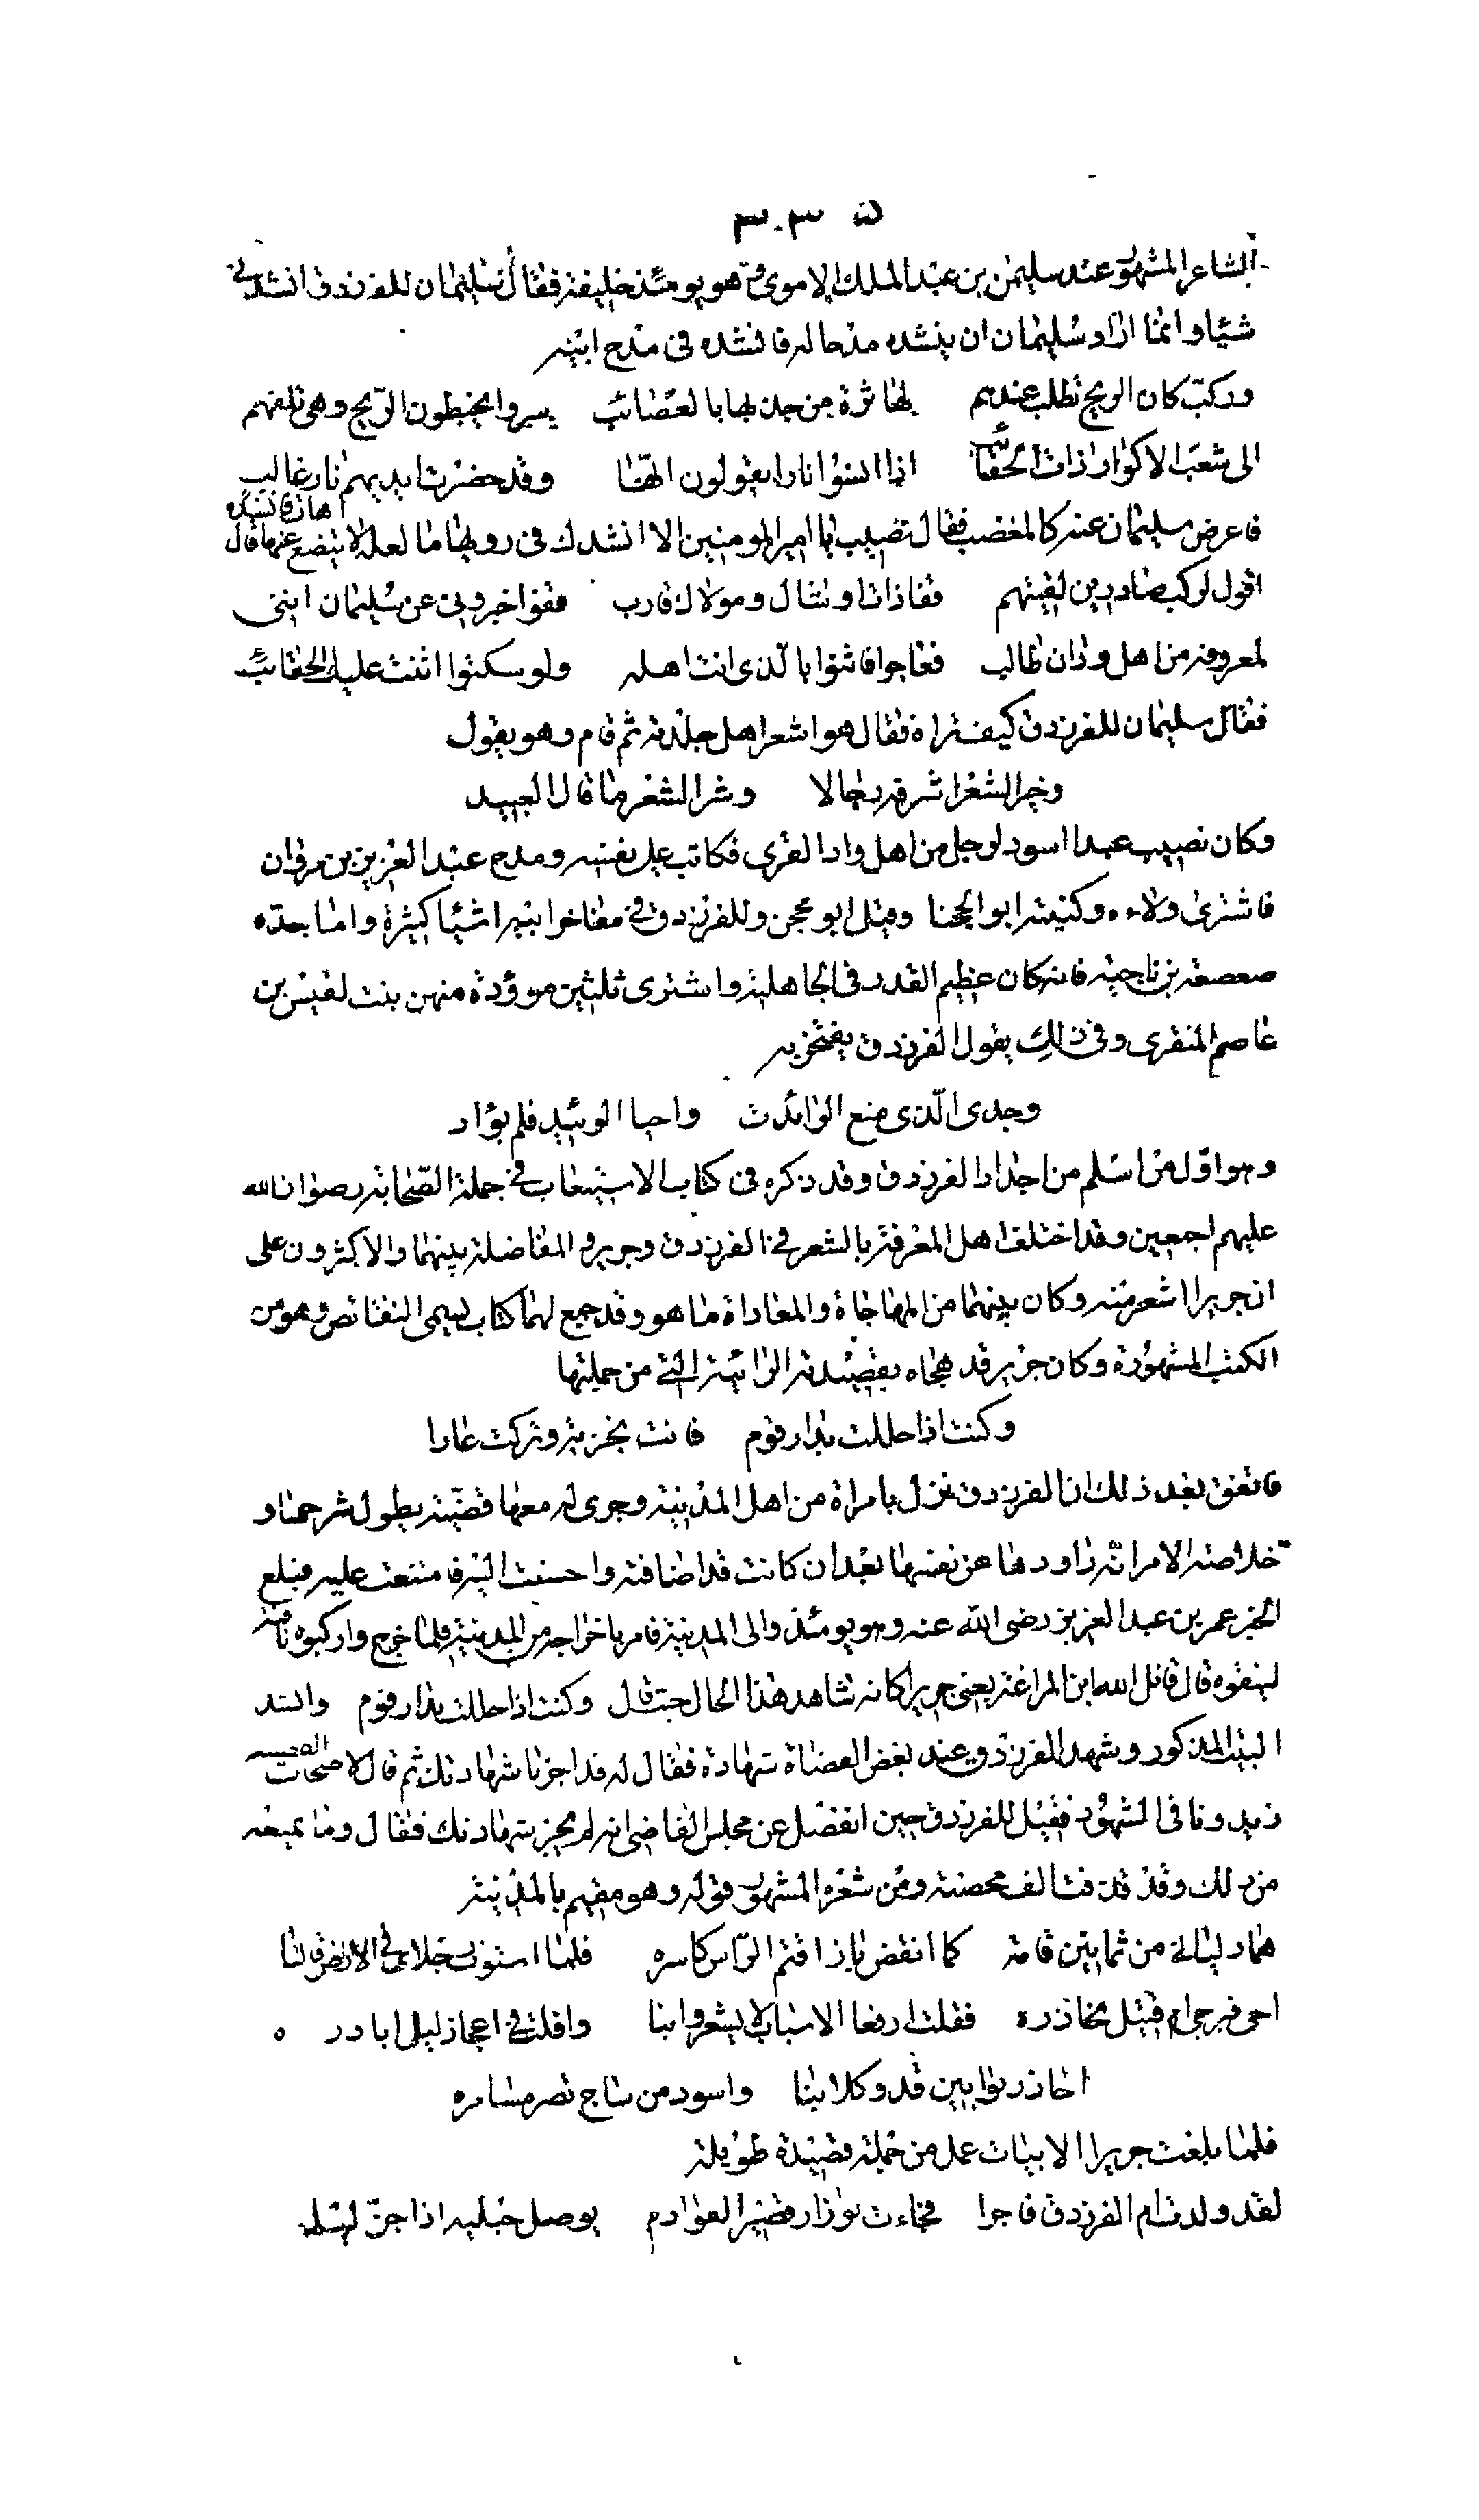 ٣٠٣
الشاعر المشهور عند سليمن بن عبد الملك الاموى وهو يومئذ خليفة فقال سليمان للفرزدق انشدنى
شيئا وانما اراد سليمان ان ينشده مدحا له فانشده فى مدح ابيه
وركب كان الريح تطلب عندهم لها ترة من جذبها بالعصائب يسروا يخبطون الريح وهى تلفهم
الى شعب الاكوار ذات الحقائب اذا انسوا نارا يقولون انها وقد حضرت ايديهم نار غالب
فاعرض سليمان عنه كالمغضب فقال نصيب يا امير المومنين الا انشدك فى رويها ما لعله لا يتضع عنها قال هات فانشده
اقول لركب صادرين لقيتهم قفا ذات اوشال ومولاك قارب قفوا خبرونى عن سليمان اننى
لمعروفه من اهل ودان طالب فعاجوا فاثنوا بالذى انت اهله ولو سكتوا اثنت عليك الحقائب
فقال سليمان للفرزدق كيف تراه فقال هو اشعر اهل جلدته ثم قام وهو يقول
وخير الشعر اشرفه رجالا وشر الشعر ما قال العبيد
وكان نصيب عبدا اسود لرجل من اهل وادا القرى فكاتب على نفسه ومدح عبد العزيز بن مروان
فاشترى ولاءه وكنيته ابو الحجنا وقيل ابو محجن وللفرزدق فى مفاخر ابيه اشيئا كثيرة واما جده
صعصعة بن ناجية فانه كان عظيم القدر فى الجاهلية واشترى ثلثين موؤدة منهن بنت لقيس بن
عاصم المنقرى وفى ذلك يقول الفرزدق يفتخر به
وجدى الذى منع الوائدت واحيا الوئيد فلم يؤاد
وهو اول من اسلم من اجداد الفرزدق وقد ذكره فى كتاب الاستيعاب فى جملة الصحابة رضوان الله
عليهم اجمعين وقد اختلف اهل المعرفة بالشعر فى الفرزدق وجرير فى المفاضلة بينهما والاكثرون على
ان جريرا اشعر منه وكان بينهما من المهاجاة والمعاداة ما هو وقد جمع لهما كتاب يسمى النقائص وهو من
الكتب المشهورة وكان جرير قد هجاه بقصيدته الرائية التى من جملتها
وكنت اذا حللت بدار قوم فانت بخزية وتركت عارا
فاتفق بعد ذلك ان الفرزدق نزل بامراة من اهل المدينة وجرى له معها قضية يطول شرحها و
خلاصة الامر انه راودها عن نفسها بعد ان كانت قد اضافته واحسنت اليه فامتنعت عليه فبلع
الخبر عمر بن عبد العزيز رضى الله عنه وهو يومئذ والى المدينة فامر باخراجه من المدينة فلما خرج واركبوه ناقته
لينفوه قال قاتل الله ابن المراغة يعنى جريرا كانه شاهد هذا الحال حيث قال وكنت اذا حللت بدار قوم وانشد
البيت المذكور وشهد الفرزدق عند بعض القضاة شهادة فقال له قد اجزنا شهادتك ثم قال لاصحاب القضية
زيدونا فى الشهود فقيل للفرزدق حين انفصل عن مجلس القاضى انه لم يجز شهادتك فقال وما يمنعه
من ذلك وقد قذفت الف محصنة ومن شعره المشهور قوله وهو مقيم بالمدينة
هما دليالة من ثمانين قامة كما انقض باز اقتم الراس كاسره فلما استوت رجلاى فى الارض قالتا
احى فيرجى ام قتيل نحاذره فقلت ارفعا الاسباب لا يشعروا بنا واقلت فى اعجاز ليل ابادره
احاذر بوابين قد وكلا بنا واسود من ساج تصر مسامره
فلما بلغت جريرا الابيات عمل من جملة قصيدة طويلة
لقد ولدت ام الفرزدق فاجرا فجاءت بوزار قصير القوادم يوصل حبليه اذا جن ليله